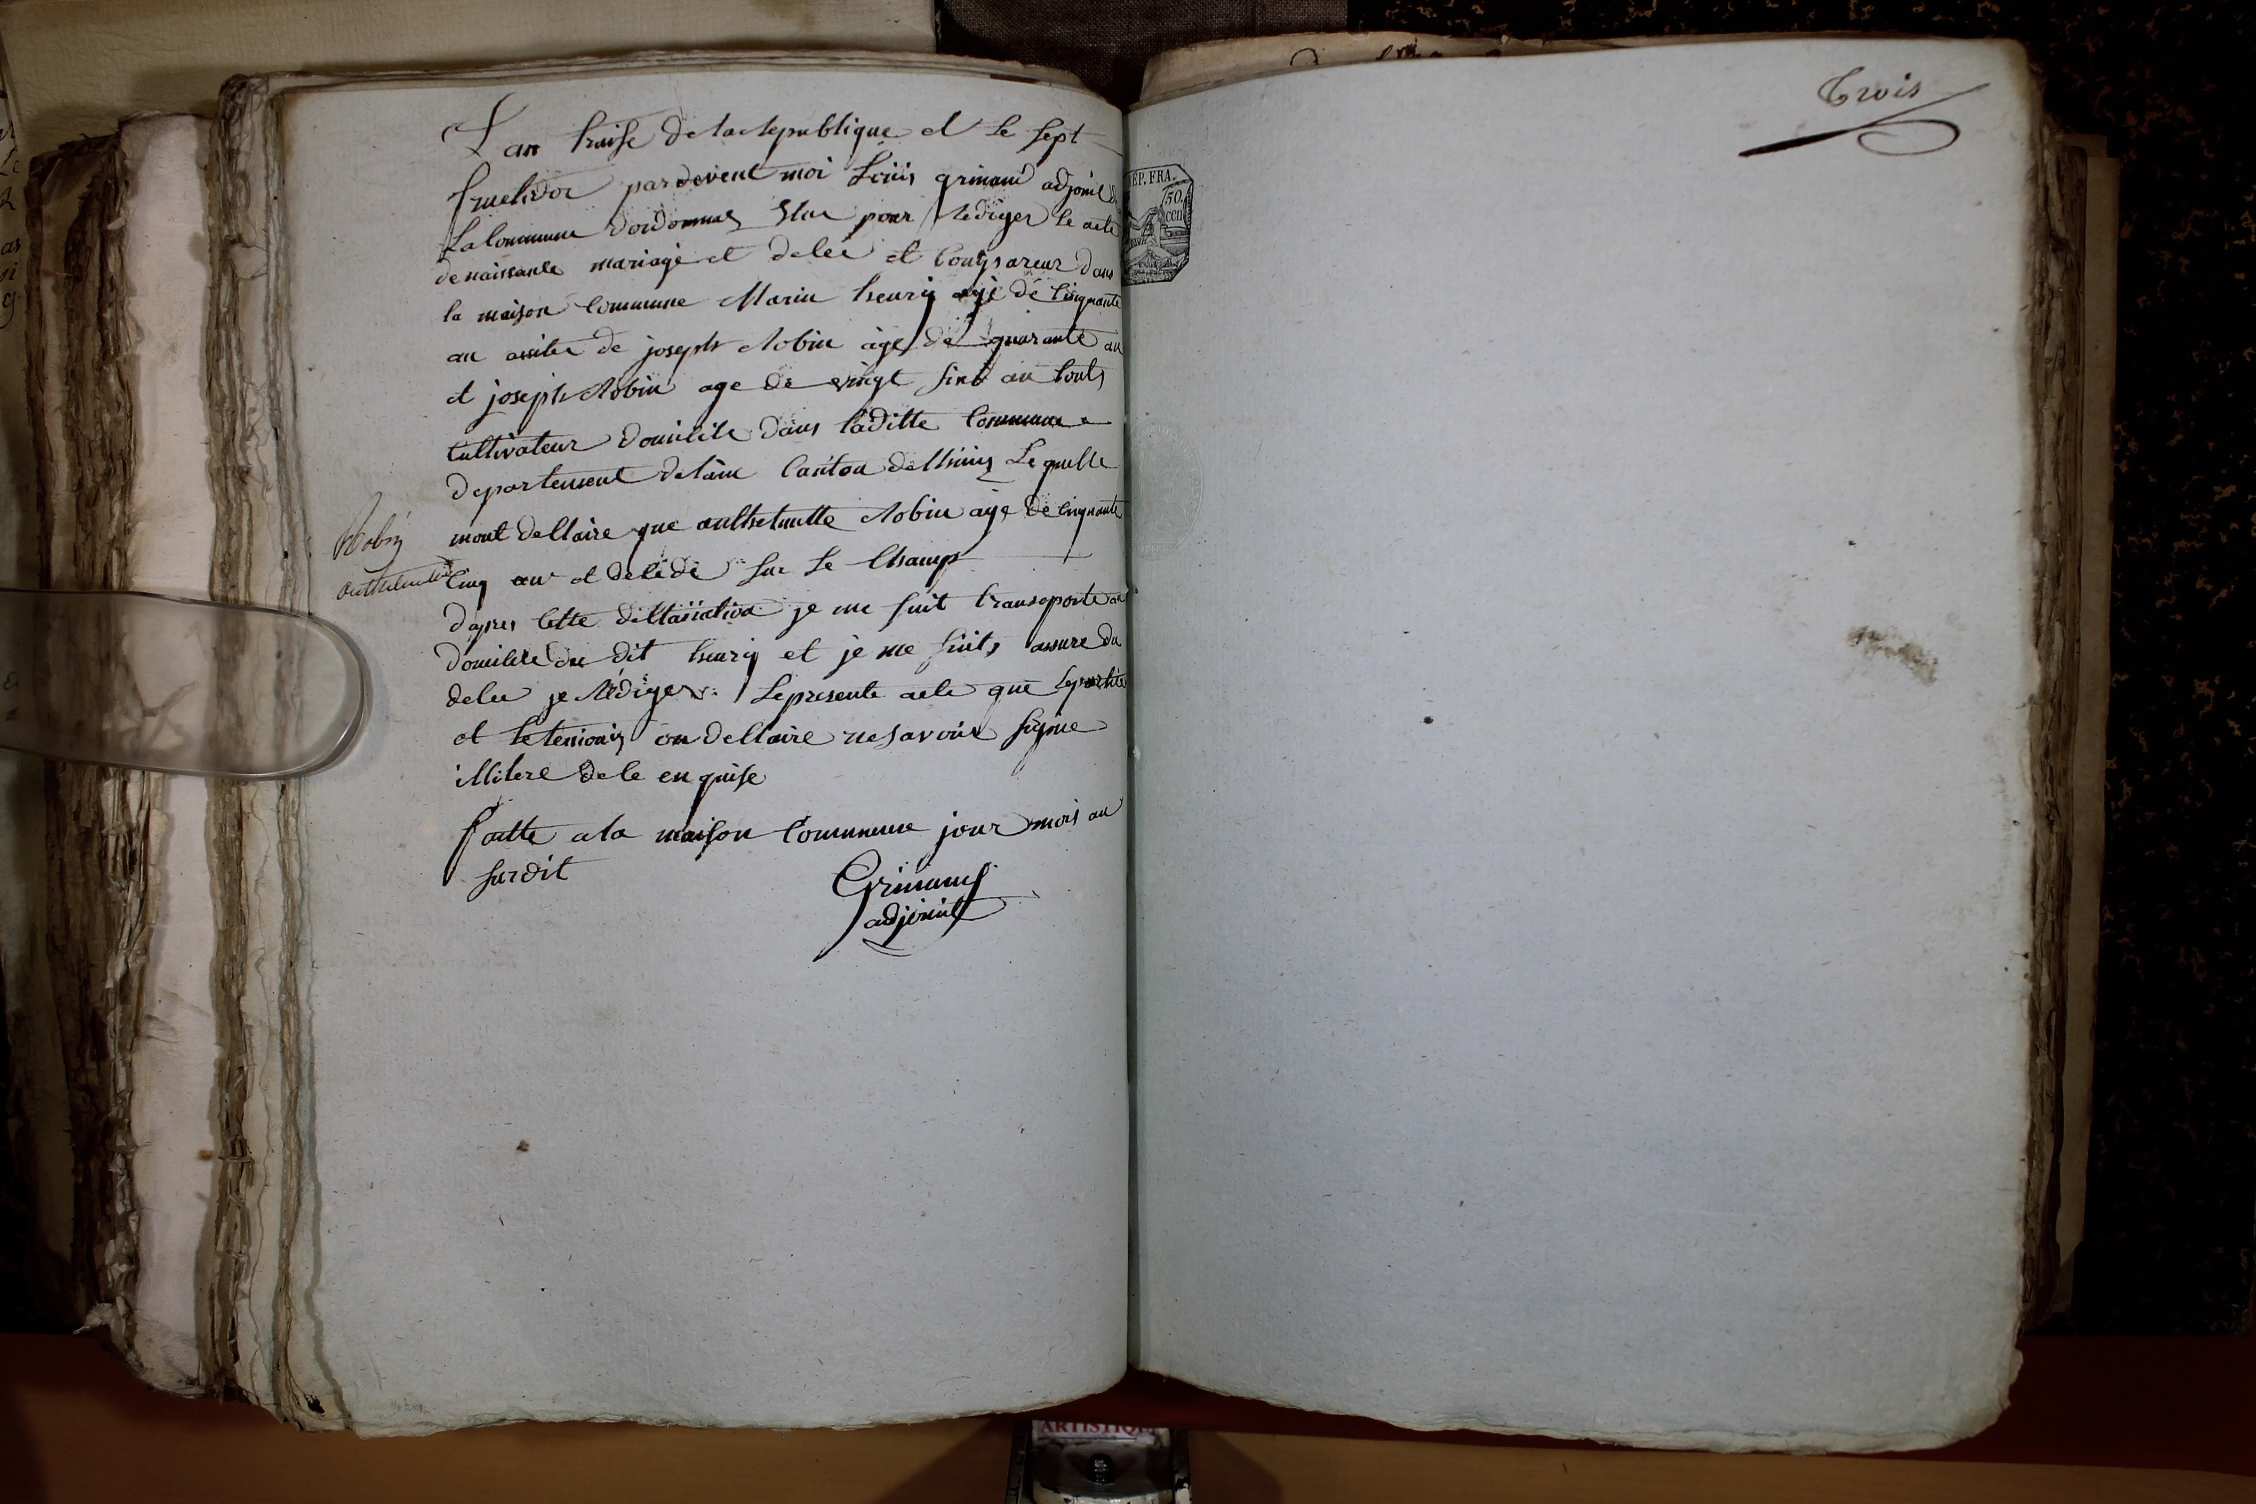 L an traise de la republique et le sept
fruetidor pardevent moi Louis grimand adjoint d
la Commune dordonnas Elue pour rediger le acte
de naissance mariage et decée et Compareur dans
la maison Commune Marin henriy age de cinquante
an assiter de joseph Robin age de quarante an
et joseph Robin age de vingt sint an touts
Cultivateur domicile dans laditte Commune
departement delain Canton de lhuiis Le quelle
mont dellaire que anthelmette Robin age de cinquante
Robin
anthelmette
Cinq an et decéde sur le Champ
dapres cette dellaration je me suit transporte au
domicile du dit henriy et je me suits assure du
decee je rediger le presente acte que le partie
et le temoins on dellaire ne savoire signe
illitere de le en quise
faitte a la maison Commune jour mois an
surdit
Grimand
adjoint
REP. FRA.
50
cen
Trois
ARTISTIQUE